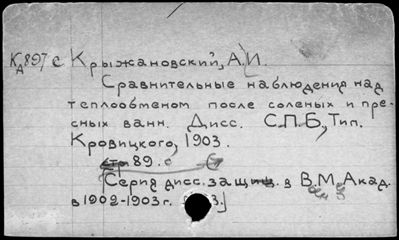 Кд897 с Крыжановский, А.И.
Сравнительные наблюдения над
теплообменом после соленых и пре-
сных ванн. Дисс. С.П.Б, Тип.
Кровицкого, 1903.
стр 89. с
[Серия дисс. защищ. в В. М. Акад.
в 1902-1903 г. 3.]